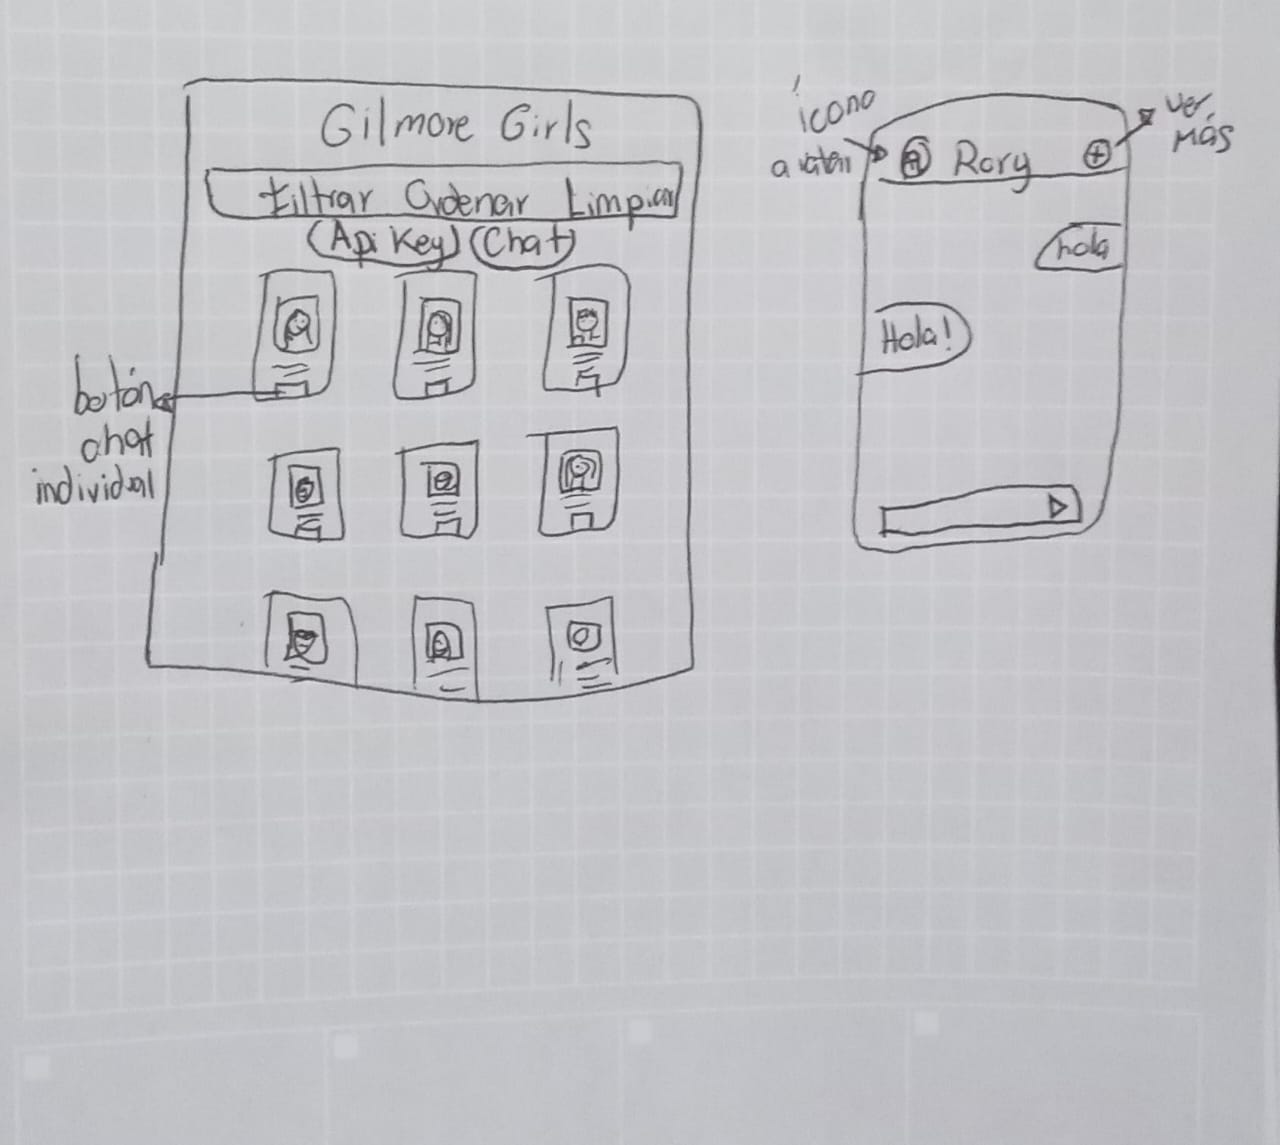 Gilmore Girls
Filtrar Ordenar Limpiar
Api Key Chat
botón
chat
individal
ícono
avatar
Rory
ver
más
hola
Hola!